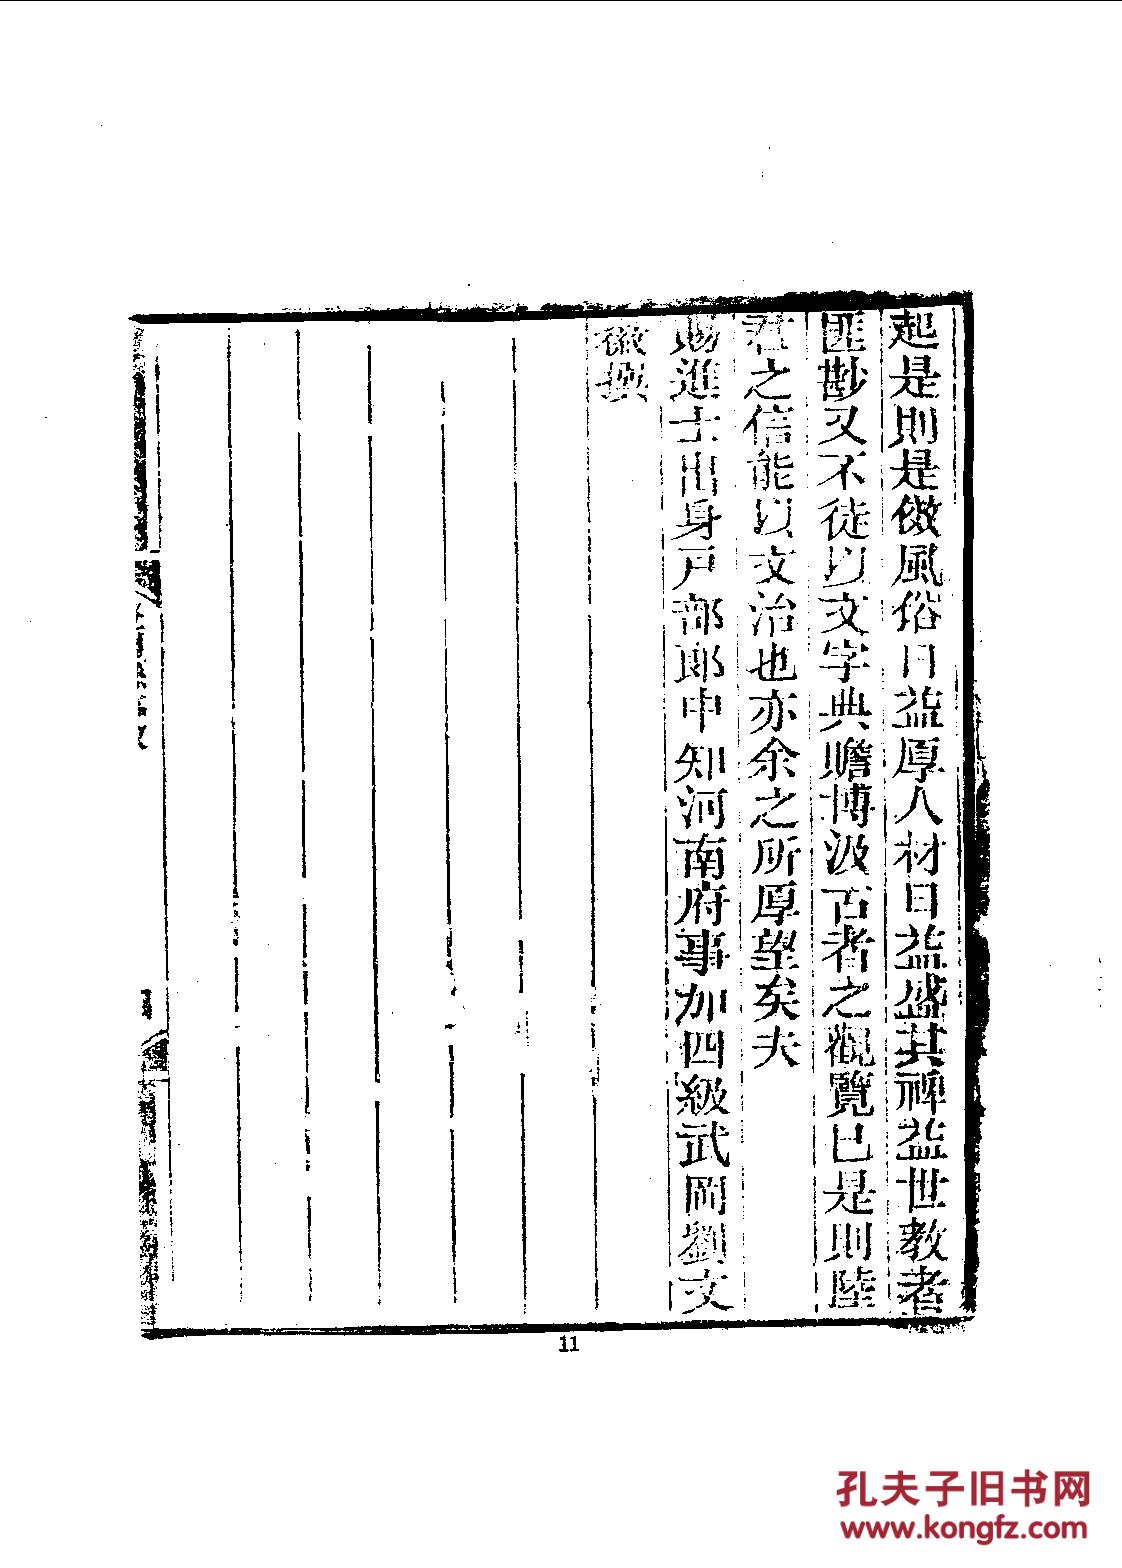 起是則是傚風俗日益厚人材日益盛其裨益世教者
匪尠又不徒以文字典贍博汲古者之觀覽已是則陸
君之信能以文治也亦余之所厚望矣夫
賜進士出身戶部郎中知河南府事加四級武岡劉文
徽撰
11
孔夫子旧书网
www.kongfz.com